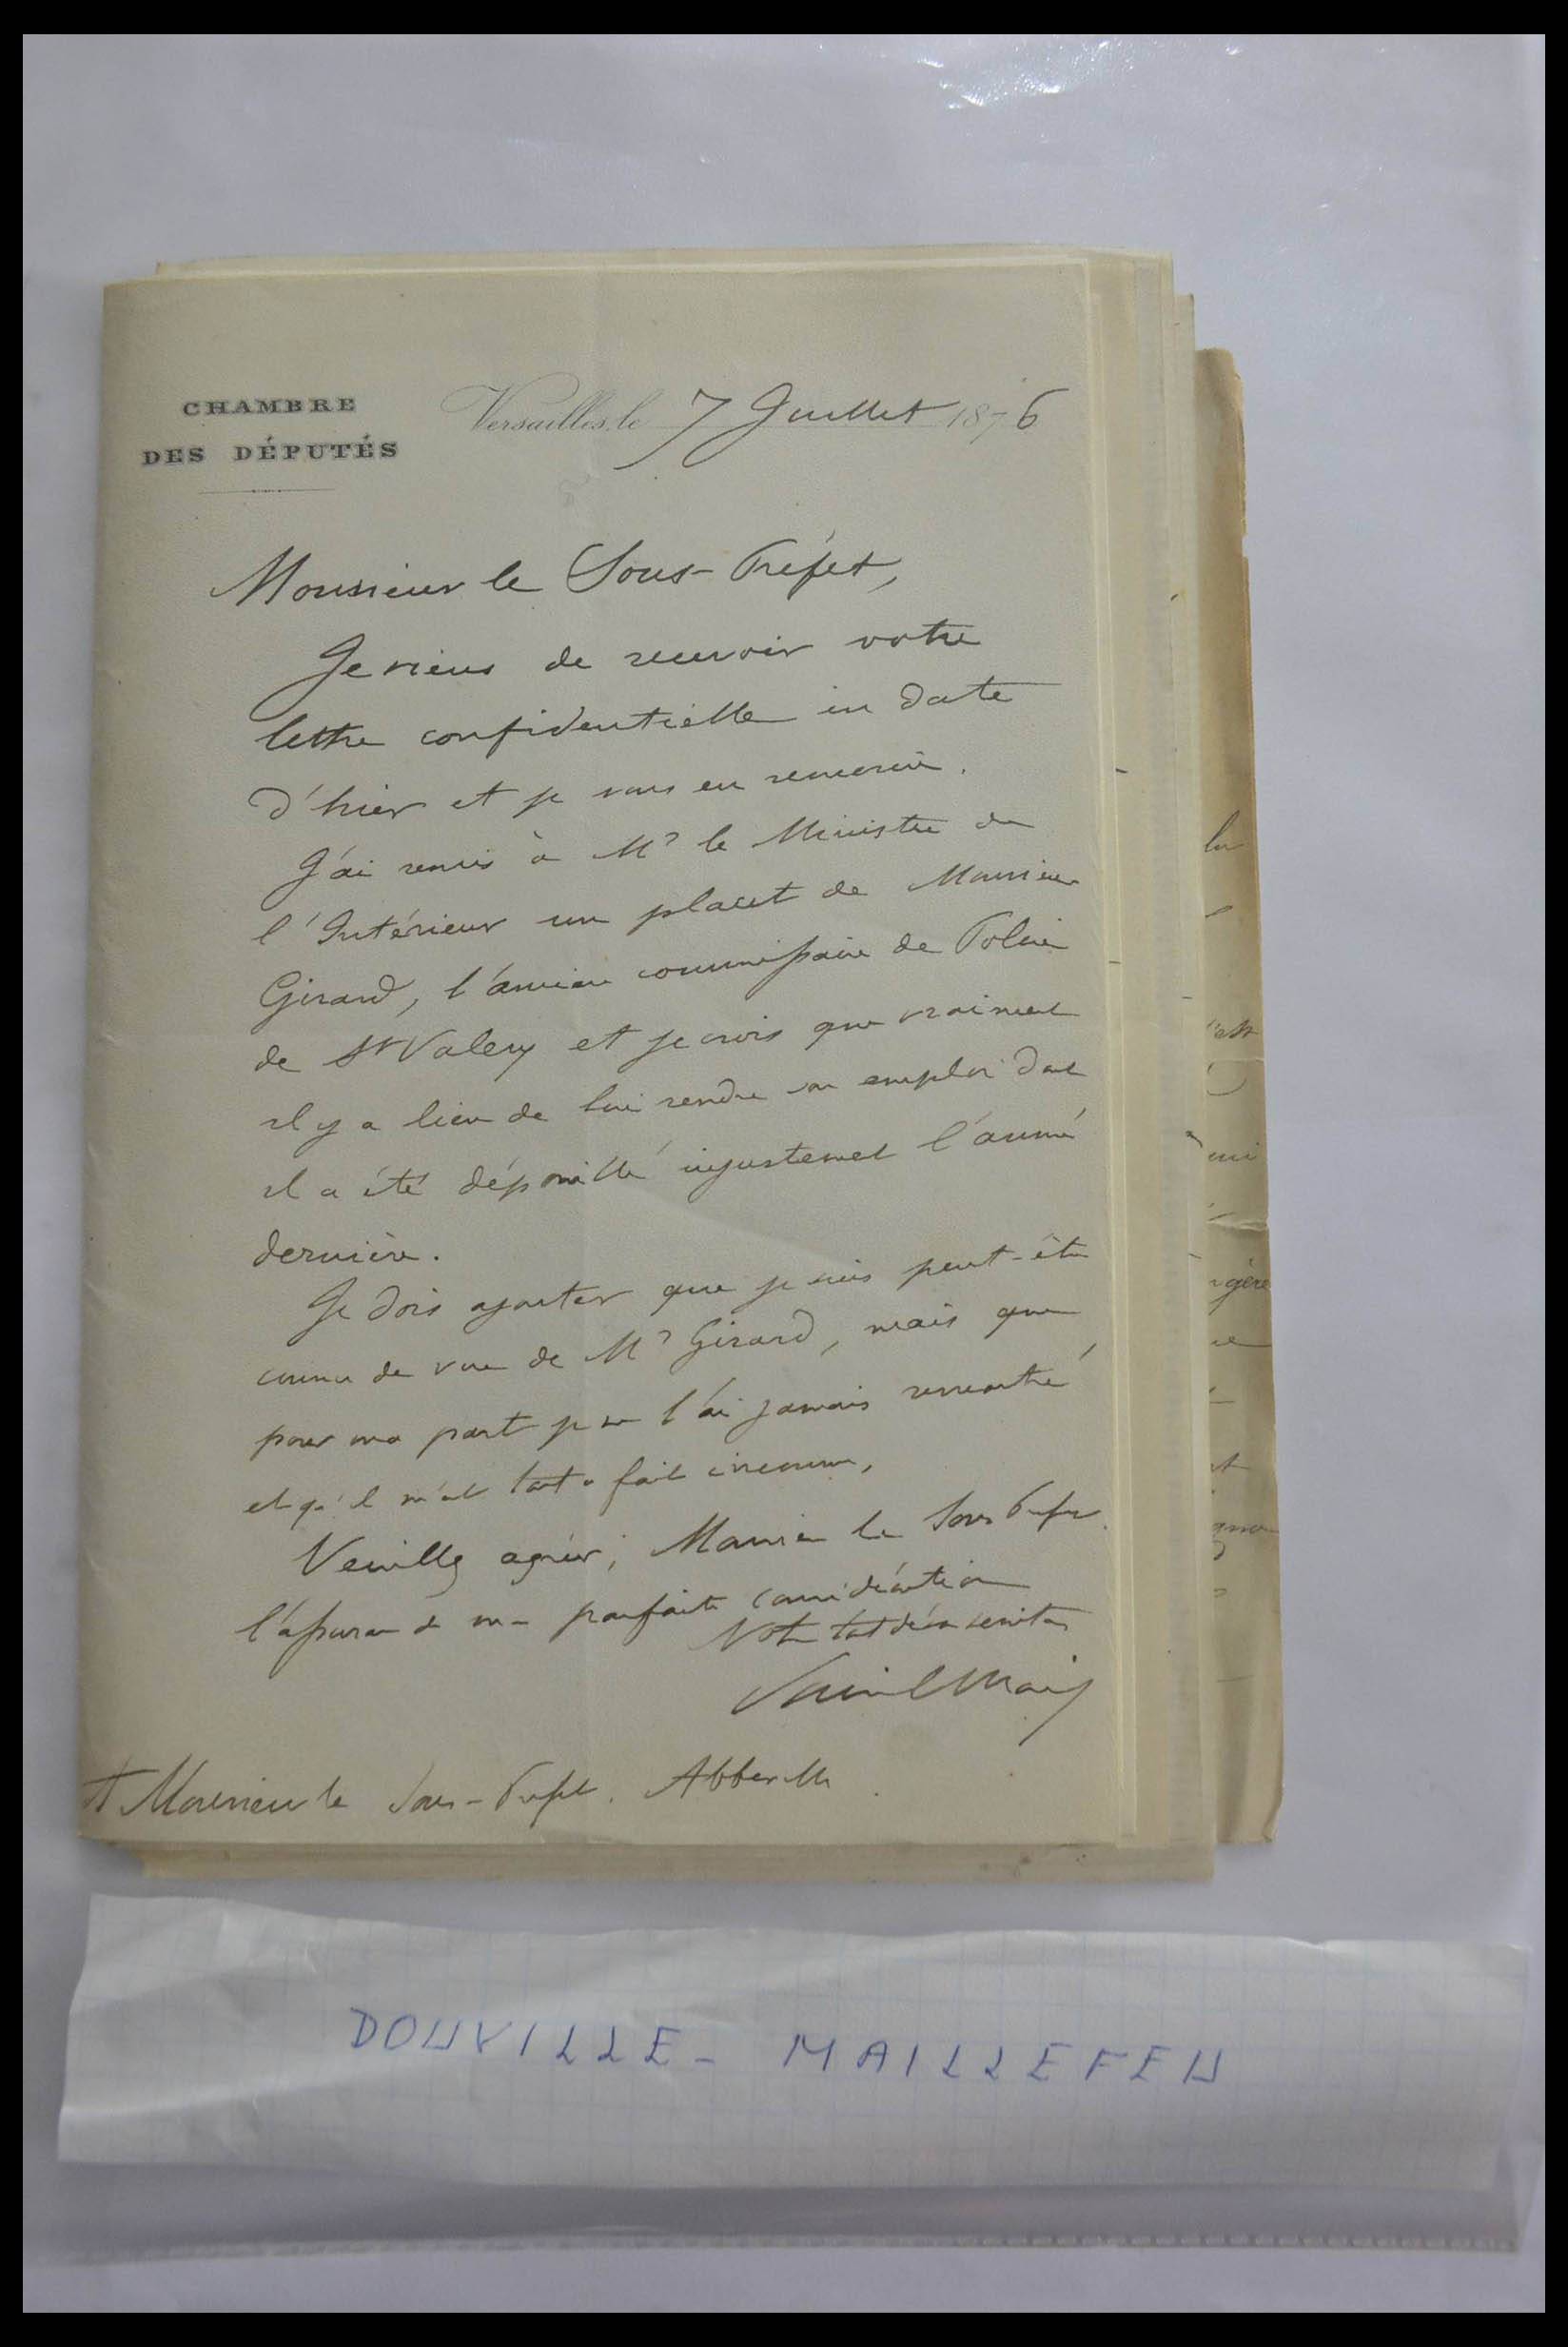 CHAMBRE
DES DÉPUTÉS
Versailles, le 7 Juillet 1876
Monsieur le Sous-Préfet,
Je viens de recevoir votre
lettre confidentielle en date
d'hier et je vous en remercie.
J'ai remis à Mr le Ministre de
l'Intérieur un placet de Monsieur
Girard, l'ancien commissaire de Police
de St Valery et je crois que vraiment
il y a lieu de lui rendre son emploi dont
il a été dépouillé injustement l'année
dernière.
Je dois ajouter que je suis peut-être
connu de vue de Mr Girard, mais que
pour ma part je ne l'ai jamais rencontré
et qu'il m'est tout a fait inconnu,
Veuillez agréer, Monsieur le Sous Préfet
l'assurance de ma parfaite considération
Votre tout dévoué serviteur
A Monsieur le Sous-Préfet. Abbeville
la
qui
DOUVILLE - MAILLEFEU